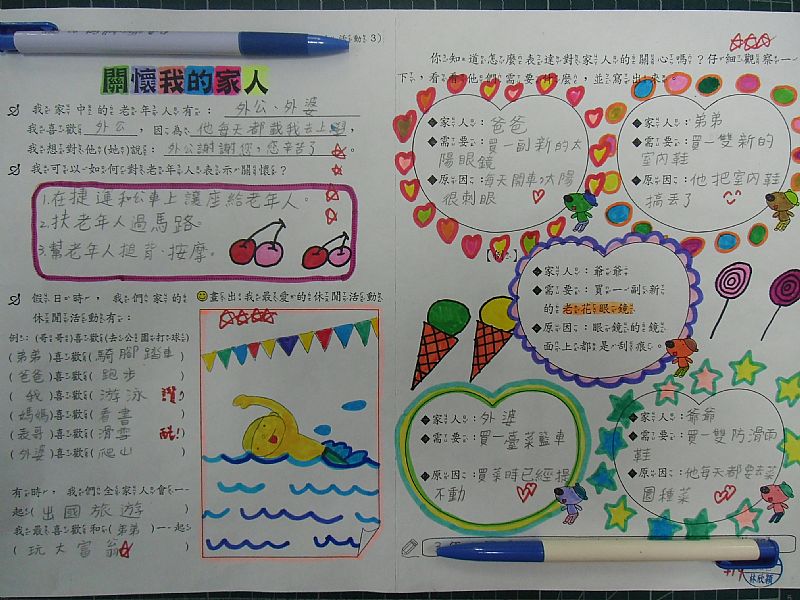 活動3)
關懷我的家人
我家中的老年人有：外公、外婆
我喜歡 外公，因為 他每天都載我去上學，
我想對他(她)說：外公謝謝您，您辛苦了。
我可以如何對老年人表示關懷？
1.在捷運和公車上讓座給老年人。
2.扶老年人過馬路。
3.幫老年人搥背、按摩。
假日時，我們家的
休閒活動有：
例：(哥哥)喜歡(去公園打球)
(弟弟)喜歡(騎腳踏車)
(爸爸)喜歡(跑步)
(我)喜歡(游泳) 讚!
(媽媽)喜歡(看書)
(表哥)喜歡(滑雪) 酷!
(外婆)喜歡(爬山)
有時，我們全家人會一
起(出國旅遊)
我最喜歡和(弟弟)一起
(玩大富翁)
畫出我最愛的休閒活動
你知道怎麼表達對家人的關心嗎？仔細觀察一
下，看看他們需要什麼，並寫出來。
◆家人：爸爸
◆需要：買一副新的太
陽眼鏡
◆原因：每天開車，太陽
很刺眼
◆家人：弟弟
◆需要：買一雙新的
室內鞋
◆原因：他把室內鞋
搞丟了
◆家人：爺爺
◆需要：買一副新
的老花眼鏡
◆原因：眼鏡的鏡
面上都是刮痕。
◆家人：外婆
◆需要：買一臺菜籃車
◆原因：買菜時已經提
不動
◆家人：爺爺
◆需要：買一雙防滑雨
鞋
◆原因：他每天都要去菜
園種菜
林欣穎